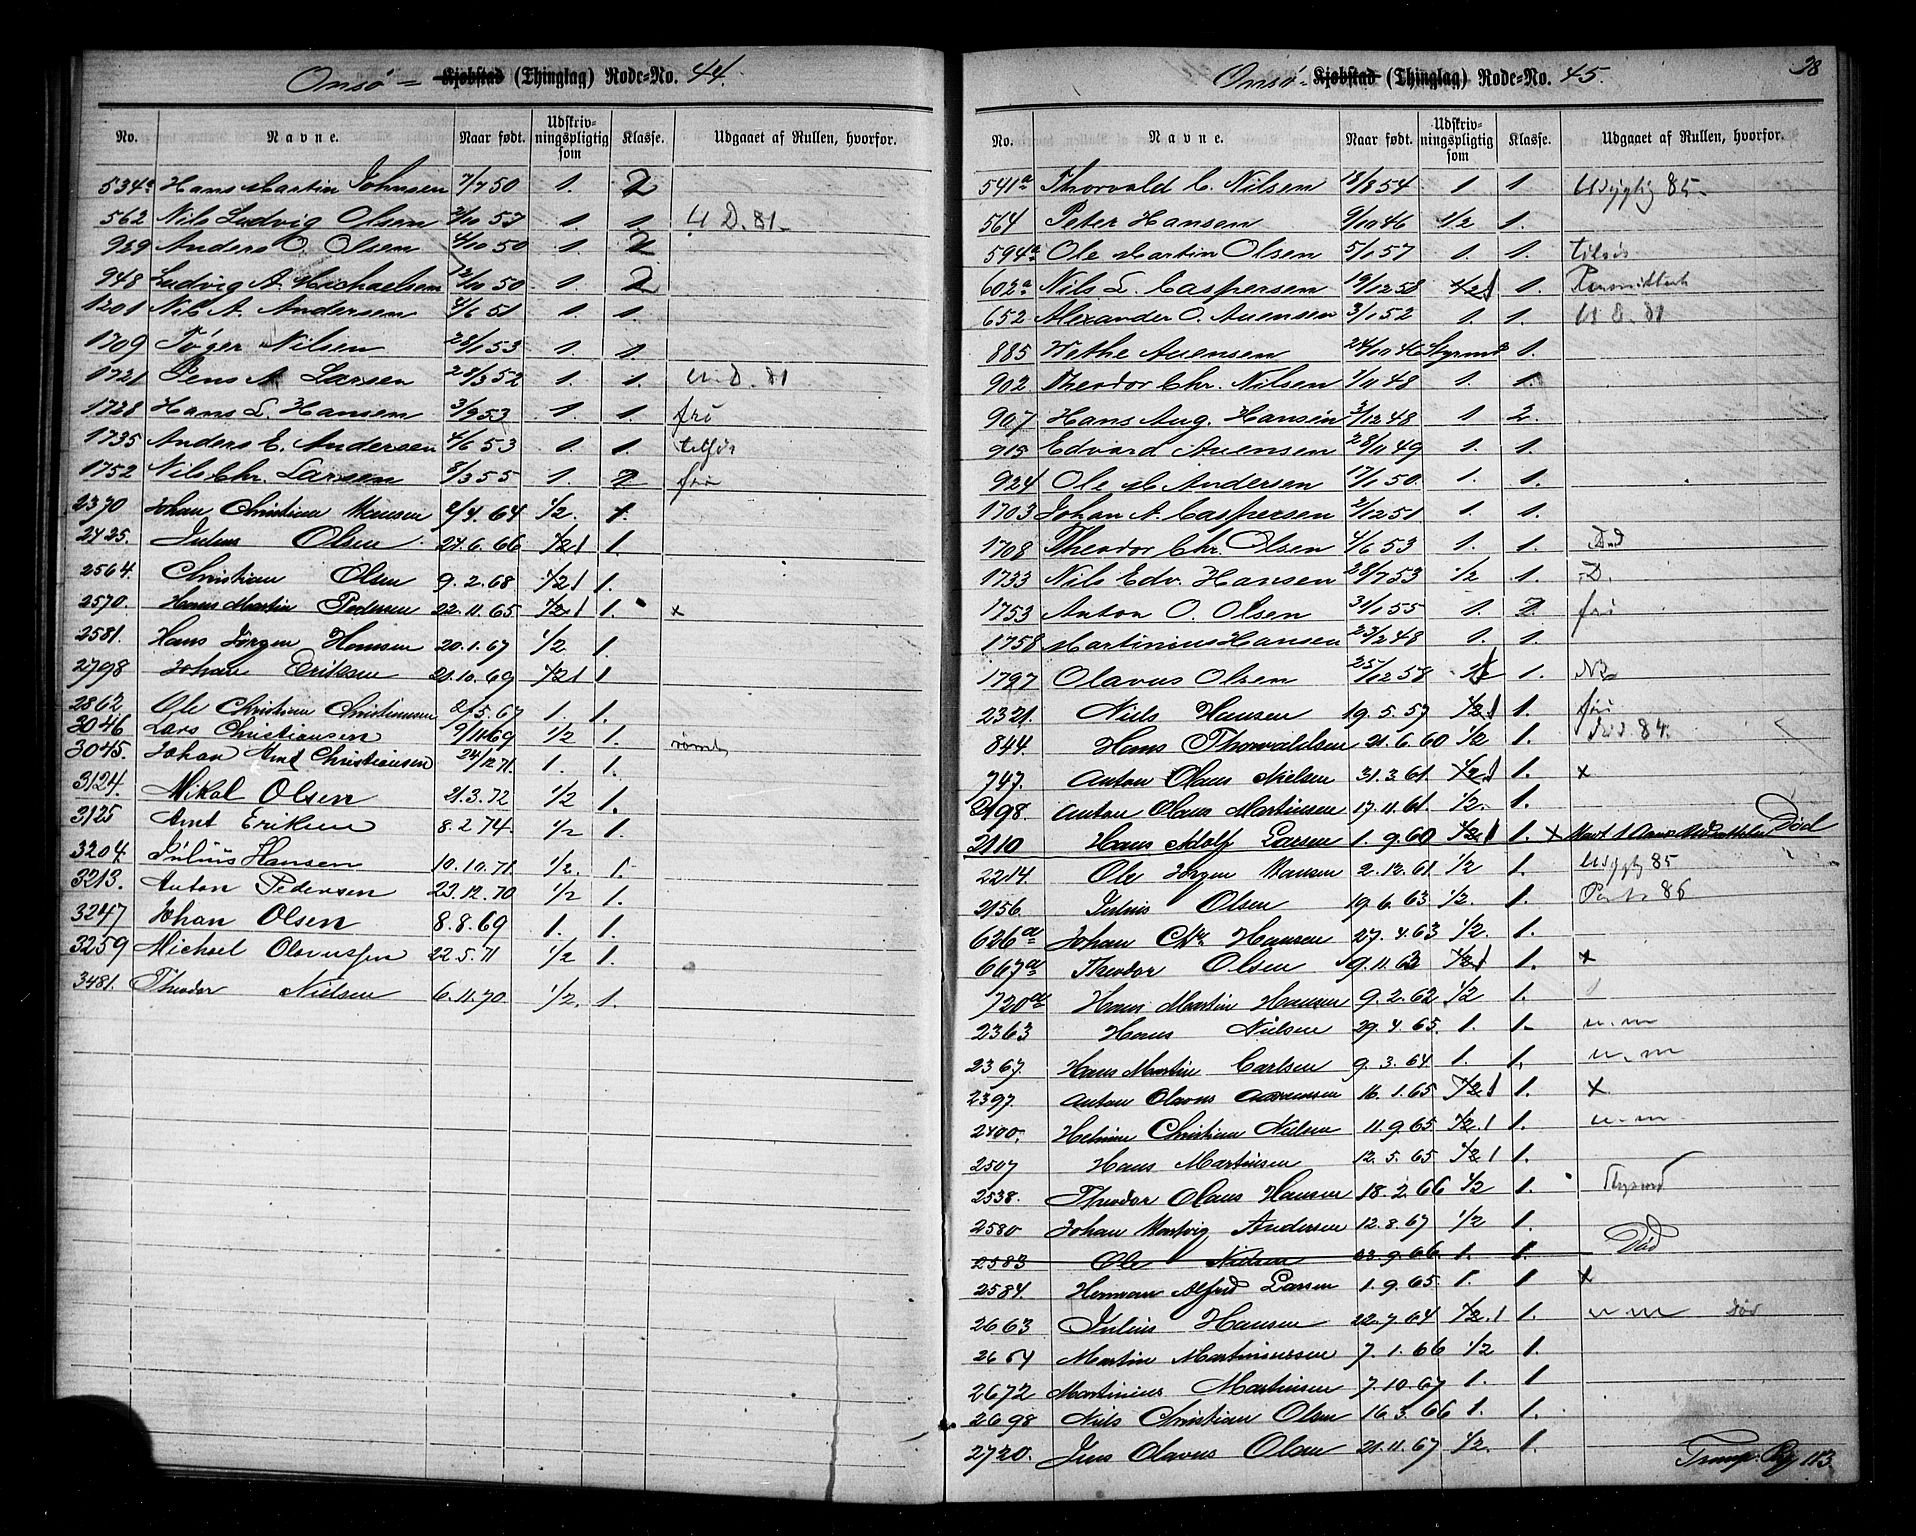 Onsø = Kjøbstad (Thinglag) Rode-No. 44.
No. Navne. Naar født. Udskrivningspligtig som Klasse. Udgaaet af Rullen, hvorfor.
534a Hans Martin Johnsen 7/7 50 1. 2
562 Nils Ludvig Olsen 53 1. 1. U D. 81.
929 Anders O. Olsen 4/10 50 1. 2
948 Ludvig A. Michaelsen 12/10 50 1. 2
1201 Nils A. Andersen 4/6 51 1. 1.
1709 Töger Nilsen 28/1 53 1. 1.
1721 Jens A. Larsen 28/3 52 1. 1. U. D. 81
1728 Hans L. Hansen 3/9 53 1. 1. fri
1735 Anders E. Andersen 4/6 53 1. 1. tilfds
1752 Nils Chr. Larsen 8/3 55 1. 2 fri
2370 Johan Christian Hansen 2/4. 64 1/2. 1.
2425. Julius Olsen 24. 6. 66 1/2 1 1.
2564. Christian Olsen 9. 2. 68 1/2 1 1.
2570. Hans Martin Pedersen 22. 11. 65 1/2 1 1. x
2581. Hans Jörgen Hansen 20. 1. 67 1/2 1.
2798 Johan Eriksen 21. 10. 69 1/2 1 1
2862 Ole Christian Christiansen 2/5. 67 1. 1.
3046 Lars Christiansen 9/11 69 1/2 1. rømt
3045. Johan Arnt Christiansen 24/12 71. 1. 1.
3124. Mikal Olsen 21. 3. 72 1/2 1.
3125 Arnt Eriksen 8. 2. 74. 1/2 1.
3204. Julius Hansen 10. 10. 71 1/2. 1.
3213. Anton Pedersen 23. 12. 70 1/2 1.
3247 Johan Olsen 8. 8. 69 1. 1.
3259 Michael Olavussen 22. 5. 71 1/2 1.
3481. Theodor Nielsen 6. 11. 70 1/2. 1.
Onsø - Kjøbstad (Thinglag) Rode-No. 45. 28
No. Navne. Naar født. Udskrivningspligtig som Klasse. Udgaaet af Rullen, hvorfor.
541a Thorvald C. Nilsen 18/8 54 1 1. Udygtig 85
564 Peter Hansen 9/10 46 1/2 1.
594a Ole Martin Olsen 5/1 57 1. 1.
602a Nils L. Caspersen 19/12 58 1/2 1 1.
652 Alexander O. Auensen 3/1 52 1. 1. U. D. 81
885 Wethe Auensen 24/10 46 Styrmd 1.
902 Theodor Chr. Nilsen 1/11 48 1. 1.
907 Hans Aug. Hansen 3/12 48 1 2.
915 Edvard Auensen 28/11 49 1. 1.
924 Ole M. Andersen 17/1 50. 1. 1.
1703 Johan A. Caspersen 2/12 51 1. 1.
1708 Theodor Chr. Olsen 4/6 53 1. 1. Død
1733 Nils Edv. Hansen 28/7 53 1/2 1. D.
1753 Anton O. Olsen 31/1 55 1. 2. fri
1758 Martinius Hansen 23/2 48 1. 1.
1797 Olavus Olsen 25/12 58 1/2 1.
2321. Niels Hansen 19. 5. 57 1/2. 1 1. fri
844. Hans Thorvaldsen 21. 6. 60 1/2 1. Død 84.
747. Anton Olaus Nielsen 31. 3. 61. 1/2. 1 1. x
2198. Anton Olaus Martinsen 17. 11. 61. 1/2. 1.
2110 Hans Adolf Larsen 1. 9. 60 1/2 1 1. x Død
2214. Ole Jörgen Hansen 2. 12. 61 1/2 1. Udygtg 85
2156. Julius Olsen 19. 6. 63 1/2. 1. 86
626a Johan Chr. Hansen 27. 4. 63 1/2. 1.
667a Theodor Olsen 9. 11. 63 1/2 1 1. x
720a Hans Martin Hansen 9. 2. 62 1/2 1.
2363 Hans Nielsen 29. 4. 65. 1. 1. u. m
2367. Hans Martin Carlsen 9. 3. 64 1. 1. u. m
2397. Anton Olavus 16. 1. 65 1/2. 1 1. x
2400. Helmin Christian Nielsen 11. 9. 65 1/2. 1 1. u. m
2507 Hans Martinsen 12. 5. 65 1/2 1 1.
2538. Theodor Olaus Hansen 18. 2. 66 1/2 1.
2580 Johan Hartvig Andersen 12. 8. 67 1/2 1.
2583 Ole Nielsen 23. 9. 66. 1. 1. Død
2584. Herman Alfred Larsen 1. 9. 65. 1. 1 x
2663 Julius Hansen 22. 7. 64 1/2. 1 1. u m Død
2664 Martin Martiniussen 7. 1. 66 1/2 1.
2672 Martinius Martinsen 7. 10. 67 1. 1
2698 Niels Christian Olsen 16. 3. 66 1. 1.
2720. Jens Olavus Olsen 21. 11. 67 1/2. 1.
Transp: Pag 113.